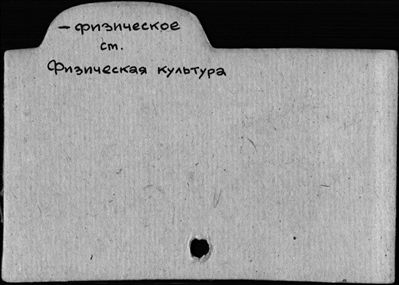 – физическое
см.
Физическая культура